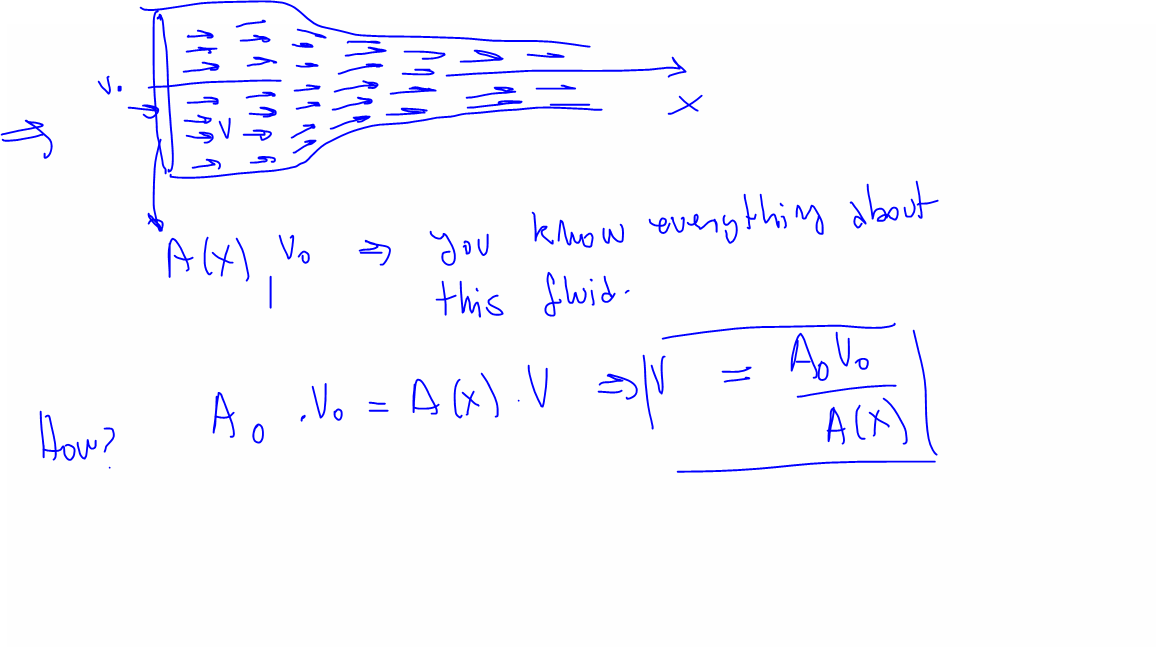 V₀
V
X
A(X), V₀ ⇒ you know everything about
this fluid.
How? A₀ . V₀ = A(X) . V ⇒ V = A₀V₀ / A(X)